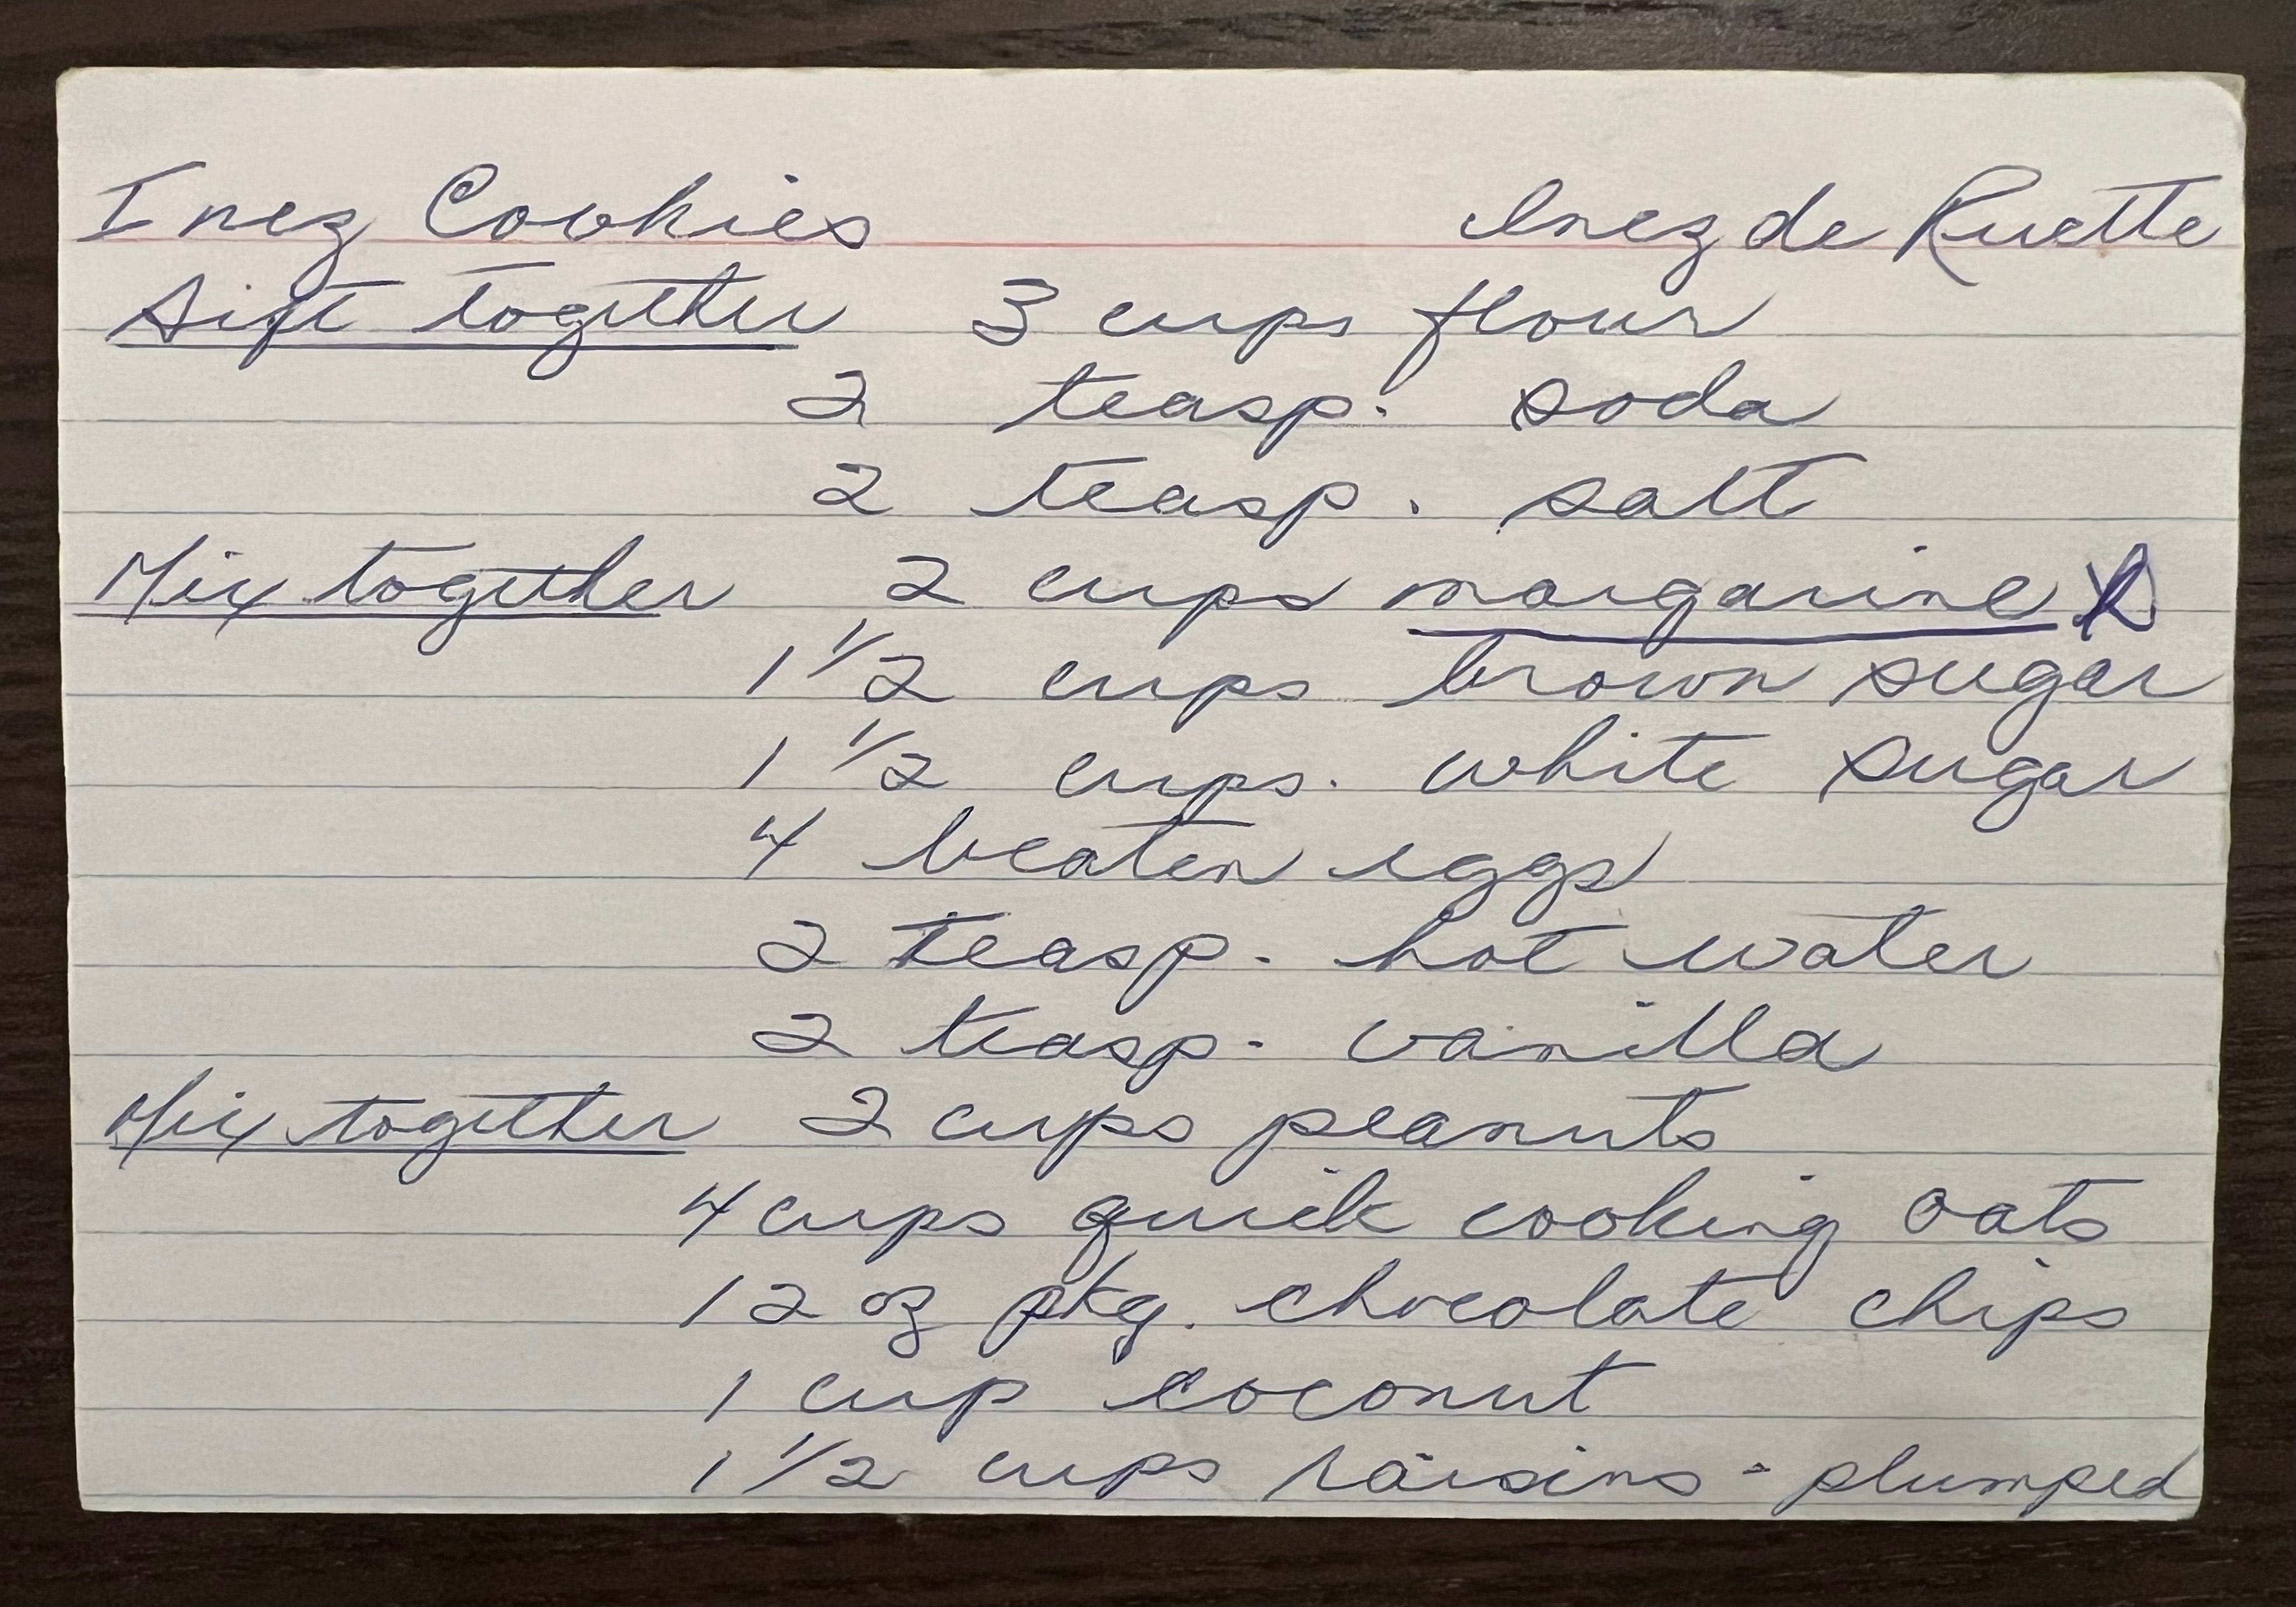 Inez Cookies Inez de Ruette
Sift together 3 cups flour
2 teasp. soda
2 teasp. salt
Mix together 2 cups margarine
1 1/2 cups brown sugar
1 1/2 cups. white sugar
4 beaten eggs
2 teasp. hot water
2 teasp. vanilla
Mix together 2 cups peanuts
4 cups quick cooking oats
12 oz pkg. chocolate chips
1 cup coconut
1 1/2 cups raisins - plumped